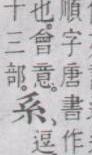 順字唐書作
也。會意。系、逗
十三部。